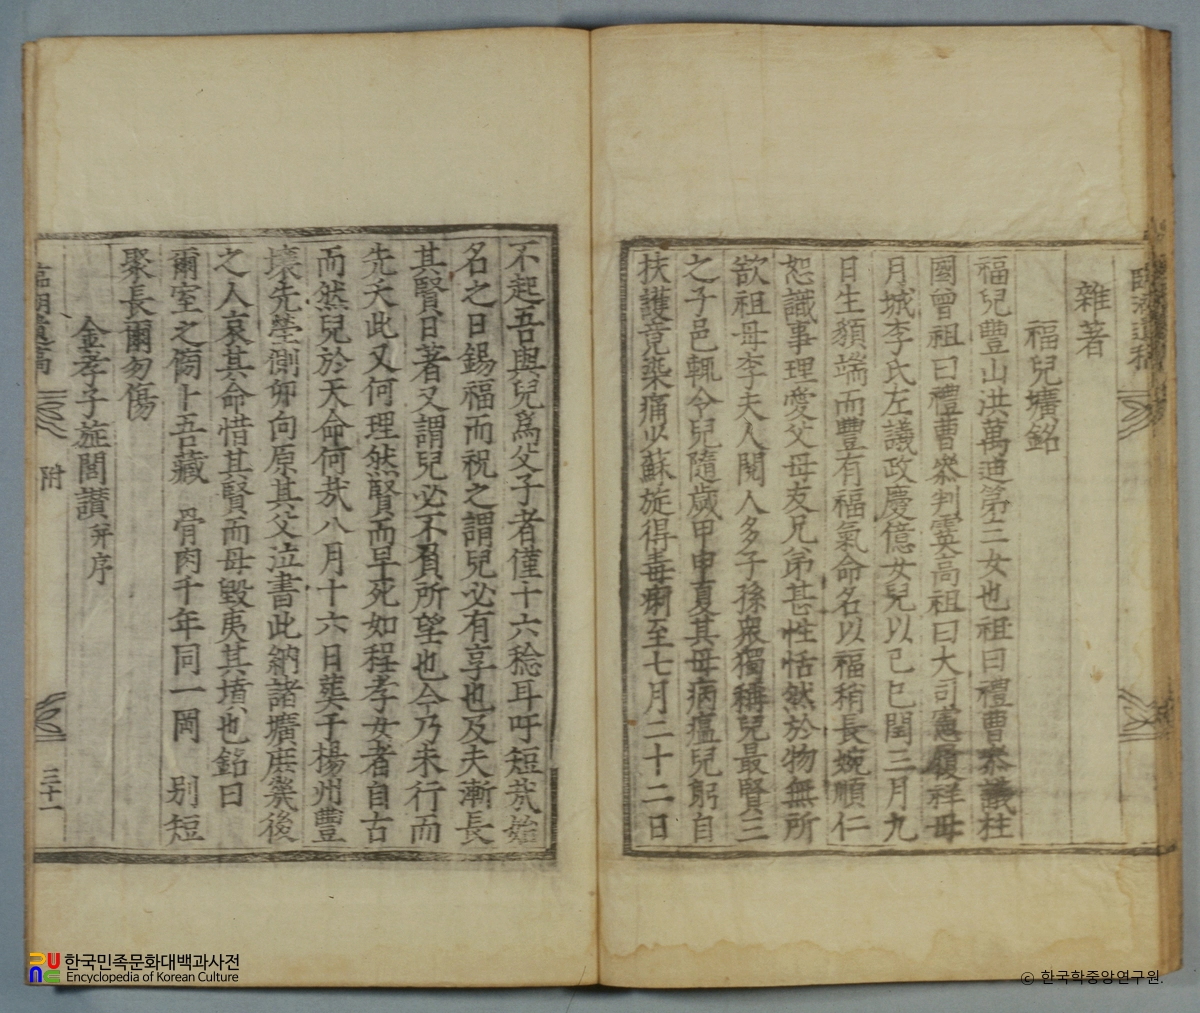 雜著
福兒壙銘
福兒豐山洪萬迪第三女也祖曰禮曹叅議柱
國曾祖曰禮曹叅判霙高祖曰大司憲履祥母
月城李氏左議政慶億女兒以己巳閏三月九
日生顙端而豐有福氣命名以福稍長婉順仁
恕識事理愛父母友兄弟甚性恬然於物無所
欲祖母李夫人閱人多子孫衆獨稱兒最賢三
之子邑輒令兒隨歲甲申夏其母病瘟兒躬自
扶護竟染痛少蘇旋得毒痢至七月二十二日
不起吾與兒爲父子者僅十六稔耳吁短㢤始
名之曰錫福而祝之謂兒必有享也及夫漸長
其賢日著又謂兒必不負所望也今乃未行而
先夭此又何理然賢而早死如程孝女者自古
而然兒於天命何㢤八月十六日葬于楊州豐
壤先塋側卯向原其父泣書此納諸壙庶幾後
之人哀其命惜其賢而毋毀夷其墳也銘曰
爾室之傍十吾藏 骨肉千年同一岡 別短
聚長爾勿傷
金孝子旌閭讃 幷序
附
三十一
한국민족문화대백과사전
Encyclopedia of Korean Culture
ⓒ 한국학중앙연구원.